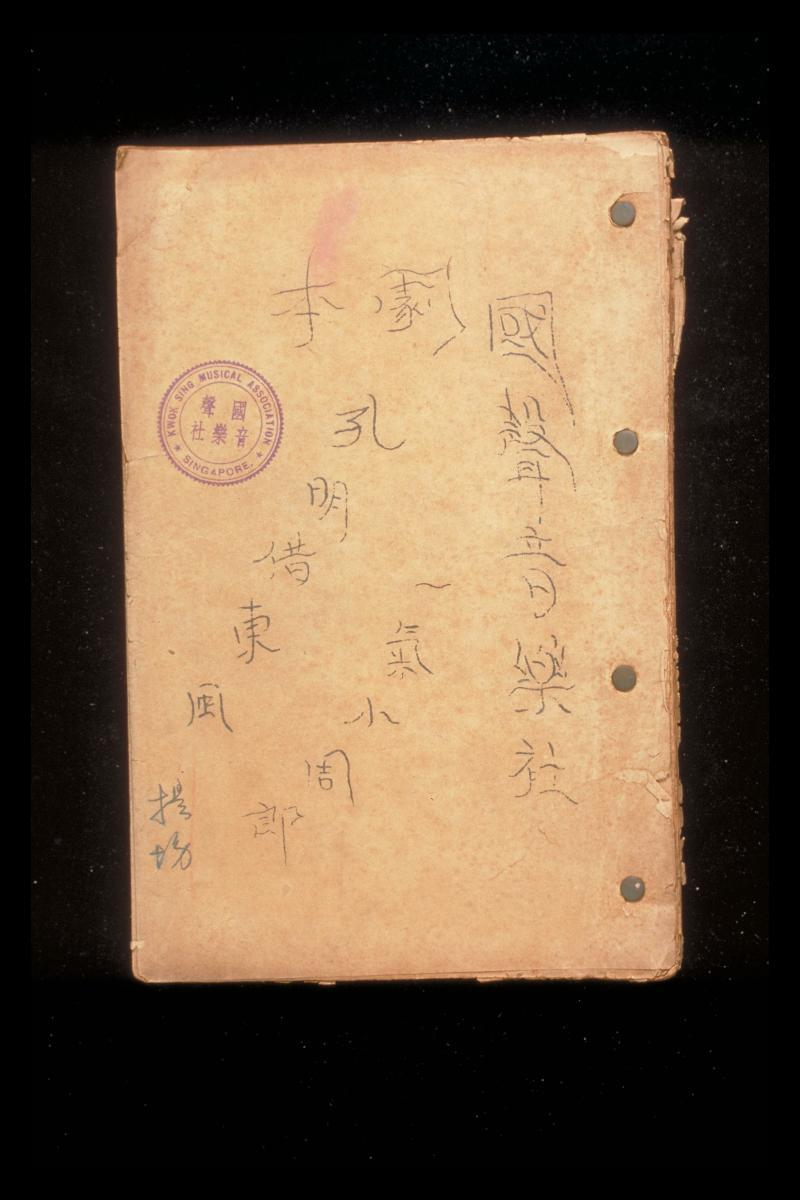 國聲音樂社
劇本
孔明借東風
一氣小周郎
KWOK SING MUSICAL ASSOCIATION
國聲
音樂社
★ SINGAPORE. ★